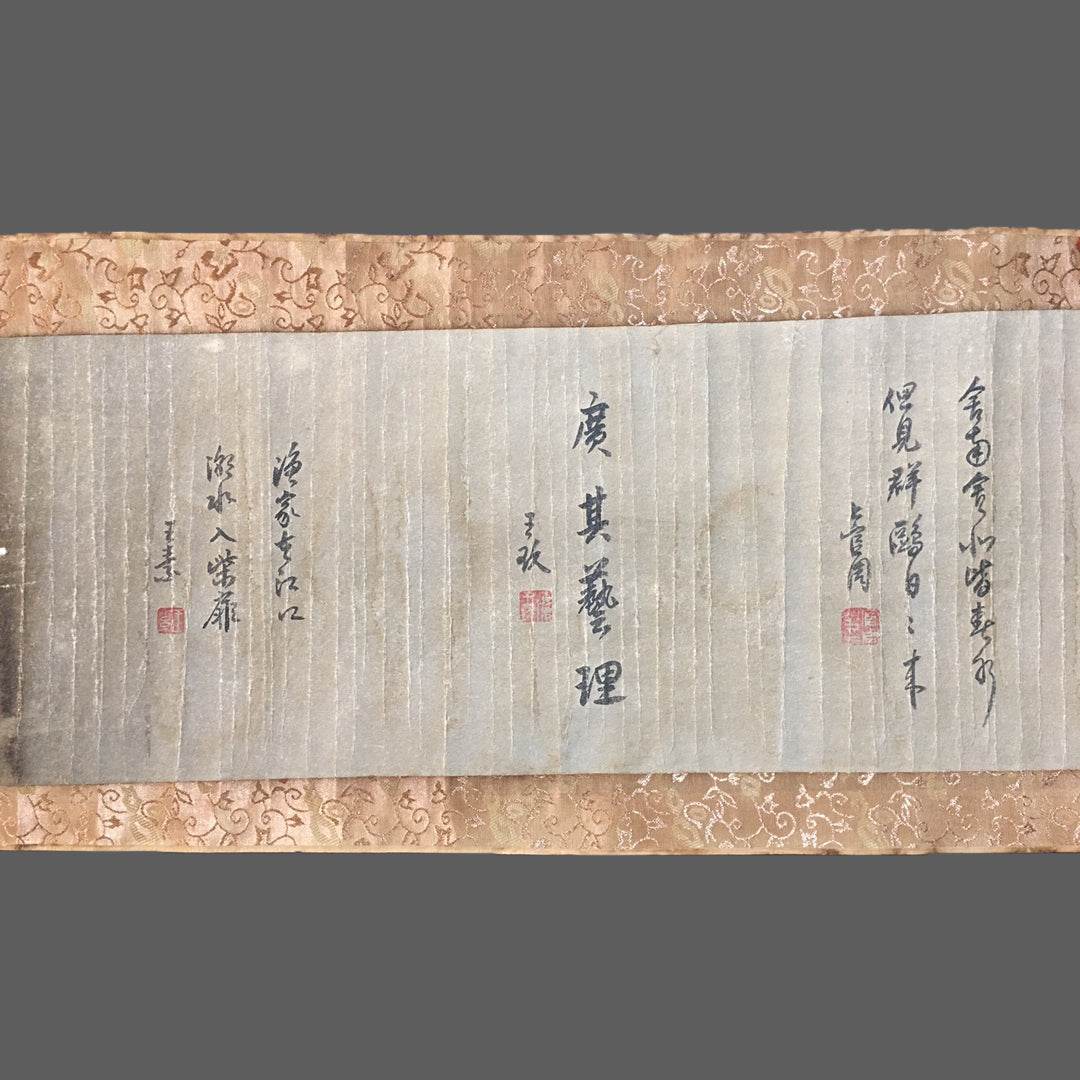 舍南舍北皆春水
但見群鷗日〻來
上官周
廣其藝理
王玖
漁家在江口
潮水入柴扉
王素